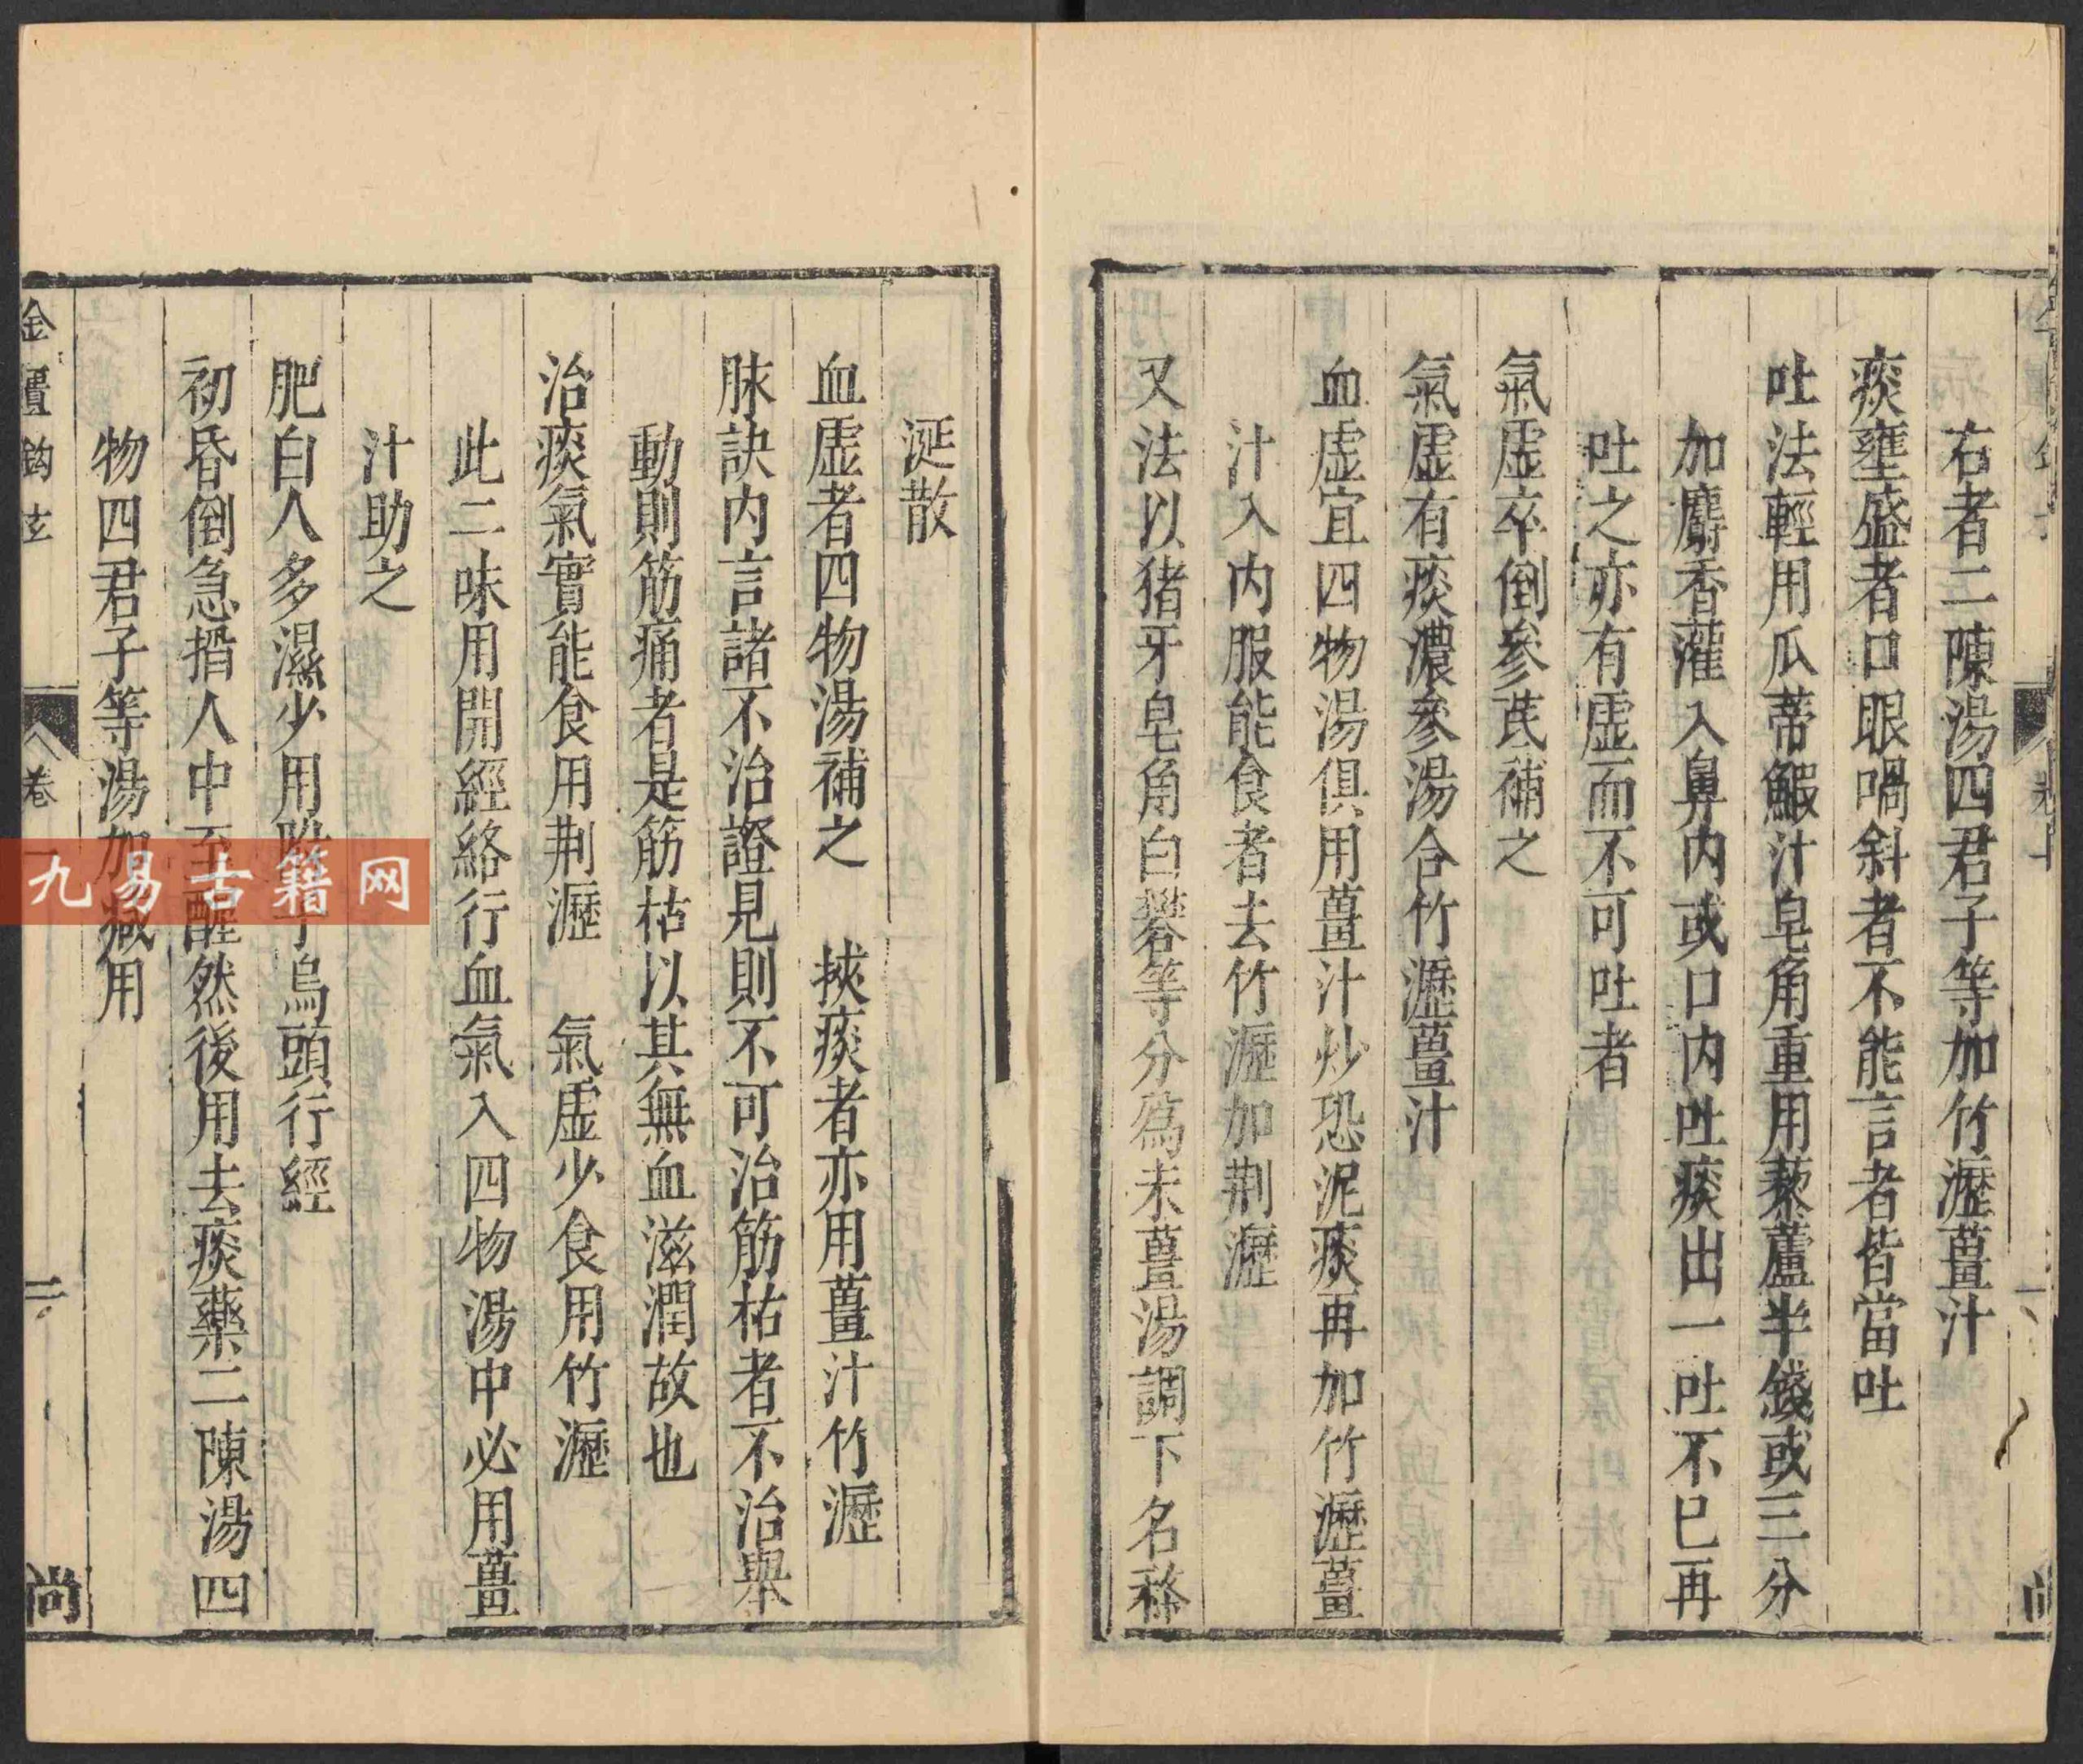 右者二陳湯四君子等加竹瀝薑汁
痰壅盛者口眼喎斜者不能言者皆當吐
吐法輕用瓜蒂鰕汁皂角重用藜蘆半錢或三分
加麝香灌入鼻內或口內吐痰出一吐不已再
吐之亦有虛而不可吐者
氣虛卒倒參芪補之
氣虛有痰濃參湯合竹瀝薑汁
血虛宜四物湯俱用薑汁炒恐泥痰再加竹瀝薑
汁入內服能食者去竹瀝加荆瀝
又法以猪牙皂角白礬等分為末薑湯調下名稀
涎散
血虛者四物湯補之 挾痰者亦用薑汁竹瀝
脉訣内言諸不治證見則不可治筋枯者不治舉
動則筋痛者是筋枯以其無血滋潤故也
治痰氣實能食用荆瀝 氣虛少食用竹瀝
此二味用開經絡行血氣入四物湯中必用薑
汁助之
肥白人多濕少用附子烏頭行經
初昏倒急掐人中至醒然後用去痰藥二陳湯四
物四君子等湯加減用
金匱鈎玄
卷一
二
尚
九易古籍网